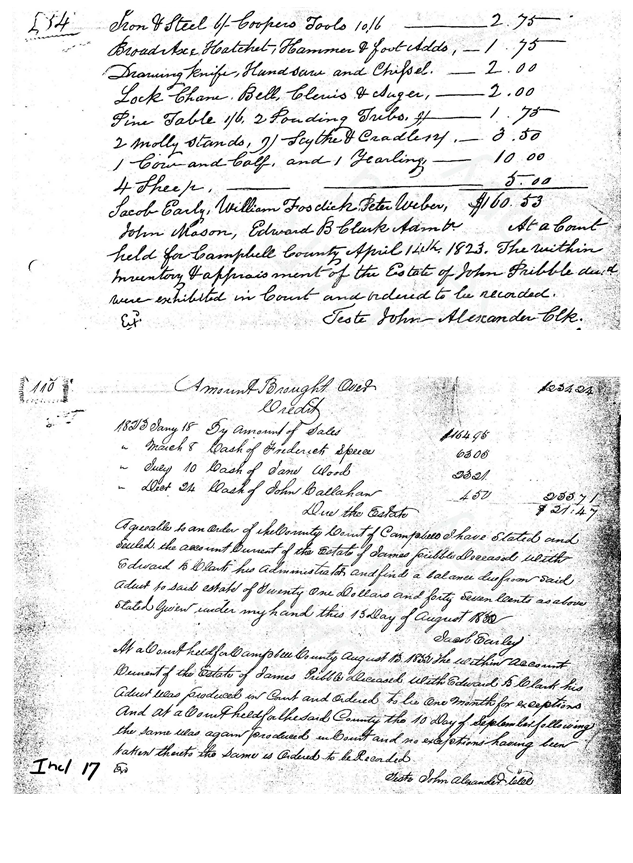 £54
Iron & Steel 6/- Coopers Tools 10/6 2.75
Broad Axe, Hatchet, Hammer & foot Adds, 1.75
Drawing knife, Handsaw and Chissel. 2.00
Lock Chane. Bell, Clevis & Auger, 2.00
Pine Table 1/6, 2 Pouding Tubs, 9/ 1.75
2 molly stands, 9/ Scythe & Cradle 12/ 3.50
1 Cow and Calf, and 1 Yearling 10 00
4 Sheep, 5.00
Jacob Early, William Fosdick, Peter Weber, $160.53
John Mason, Edward B Clark Admtr At a Court
held for Campbell County April 14th, 1823. The within
Inventory & appraisment of the Estate of John Pribble decd
were exhibited in Court and ordered to be recorded.
Ex Teste John Alexander Clk.
110
Amount Brought Over $234 24
Credit
1823 Jany 18 By Amount of Sales $164 95
" March 8 Cash of Frederick Speece 63 05
" July 10 Cash of Jane Wood 23 21
" Decr 24 Cash of John Callahan 4 50 233 71
Due the Estate $21.47
Agreeable to an Order of the County Court of Campbell I have Stated and
Settled the account Current of the Estate of James pribble Deceased with
Edward B Clark his Administrator and find a balance due from said
Admr to said estate of Twenty One Dollars and forty Seven Cents as above
Stated Given under my hand this 13 Day of August 1832
Jacob Earley
At a Court held for Campbell County August 13, 1832 The within account
Current of the Estate of James Pribble deceased with Edward B Clark his
Admr was produced in Court and Ordered to lie One Month for exceptions
And at a Court held for the said County the 10 Day of September following
the same was again produced in Court and no exceptions having been
taken thereto the same is Ordered to be Recorded
Incl 17 Ex
Teste John Alexander Clk